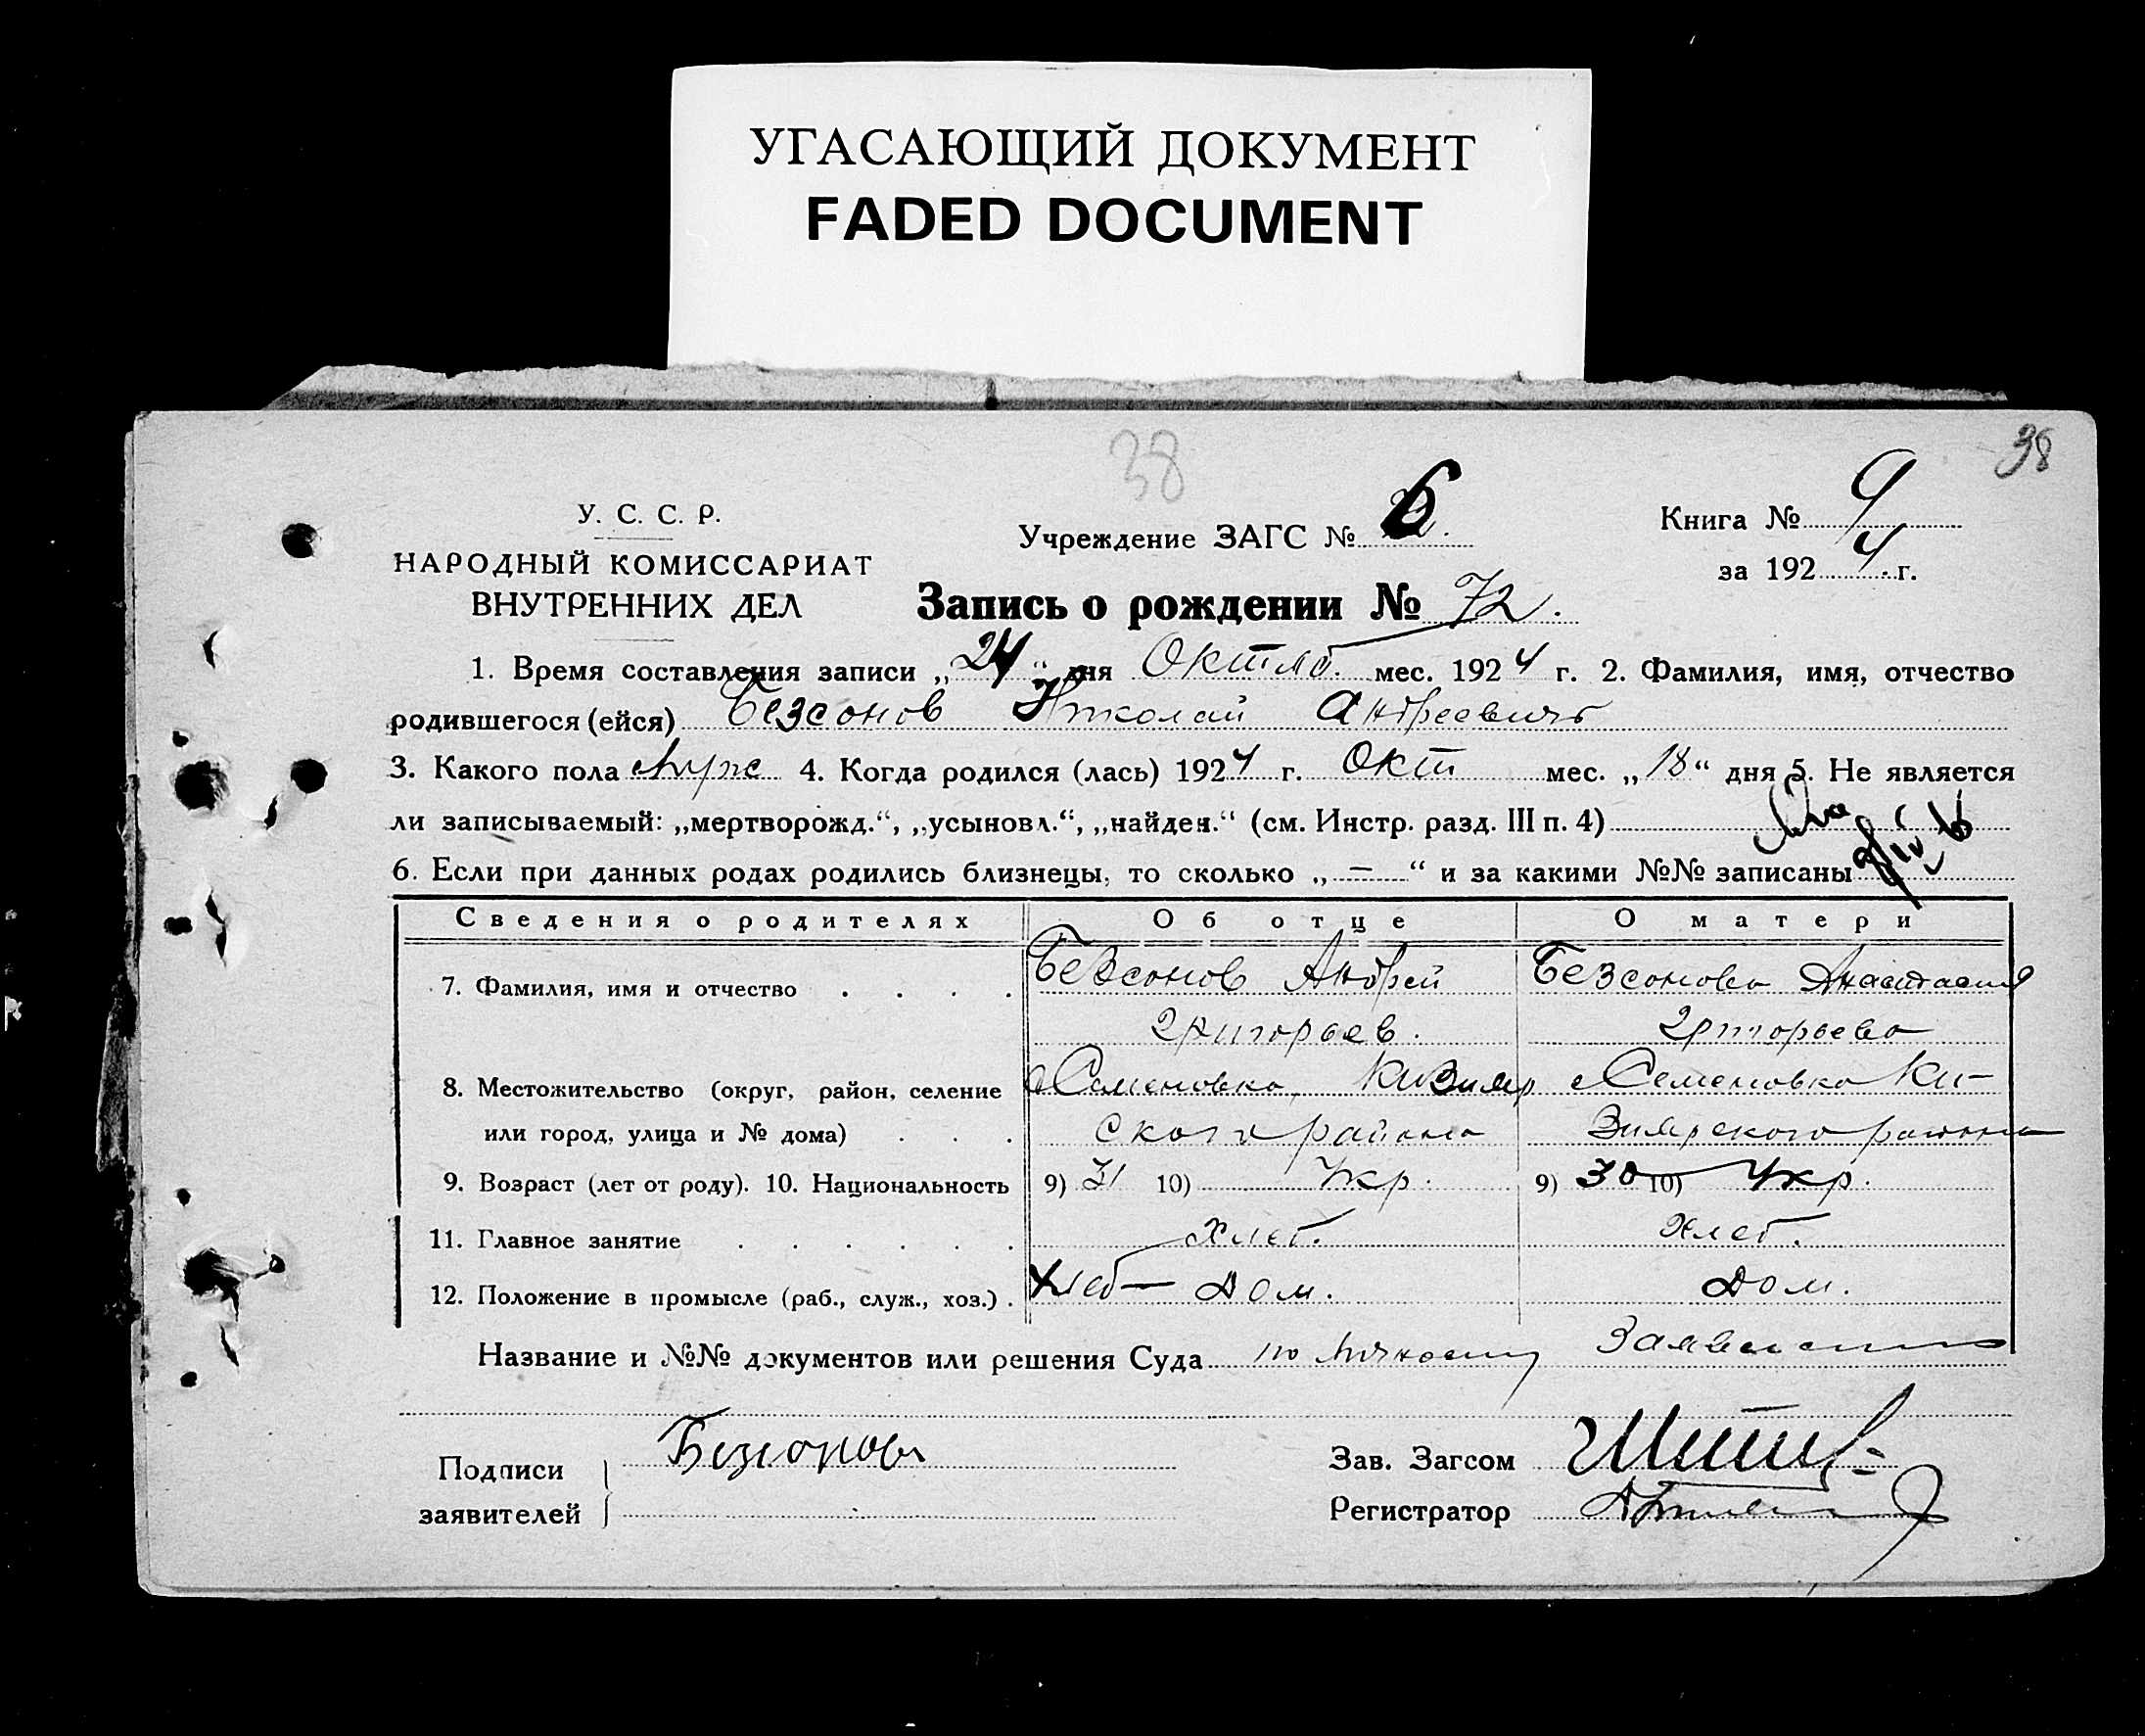 УГАСАЮЩИЙ ДОКУМЕНТ
FADED DOCUMENT
38
38
У. С. С. Р.
НАРОДНЫЙ КОМИССАРИАТ
ВНУТРЕННИХ ДЕЛ
Учреждение ЗАГС № 6
Книга № 9
за 1924 г.
Запись о рождении № 72.
1. Время составления записи „24“ дня Октяб. мес. 1924 г. 2. Фамилия, имя, отчество
родившегося (ейся) Безсонов Николай Андреевичъ
3. Какого пола Муж 4. Когда родился (лась) 1924 г. Окт мес. „18“ дня 5. Не является
ли записываемый: „мертворожд.“, „усыновл.“, „найден.“ (см. Инстр. разд. III п. 4)
6. Если при данных родах родились близнецы, то сколько „—“ и за какими №№ записаны
Сведения о родителях Об отце О матери
7. Фамилия, имя и отчество . . . . Безсонов Андрей Безсонова Анастасия
Григорьев. Григорьева
8. Местожительство (округ, район, селение с Семеновка, Кизияр с Семеновка Ки-
или город, улица и № дома) . . . ского района Зиярского района
9. Возраст (лет от роду). 10. Национальность 9) 31 10) Укр. 9) 30 10) Укр.
11. Главное занятие . . . . . . Хлеб. Хлеб.
12. Положение в промысле (раб., служ., хоз.) . Хлеб — Дом. Дом.
Название и №№ документов или решения Суда по личному Заявлению
Подписи
заявителей
Безсонов
Зав. Загсом
Регистратор